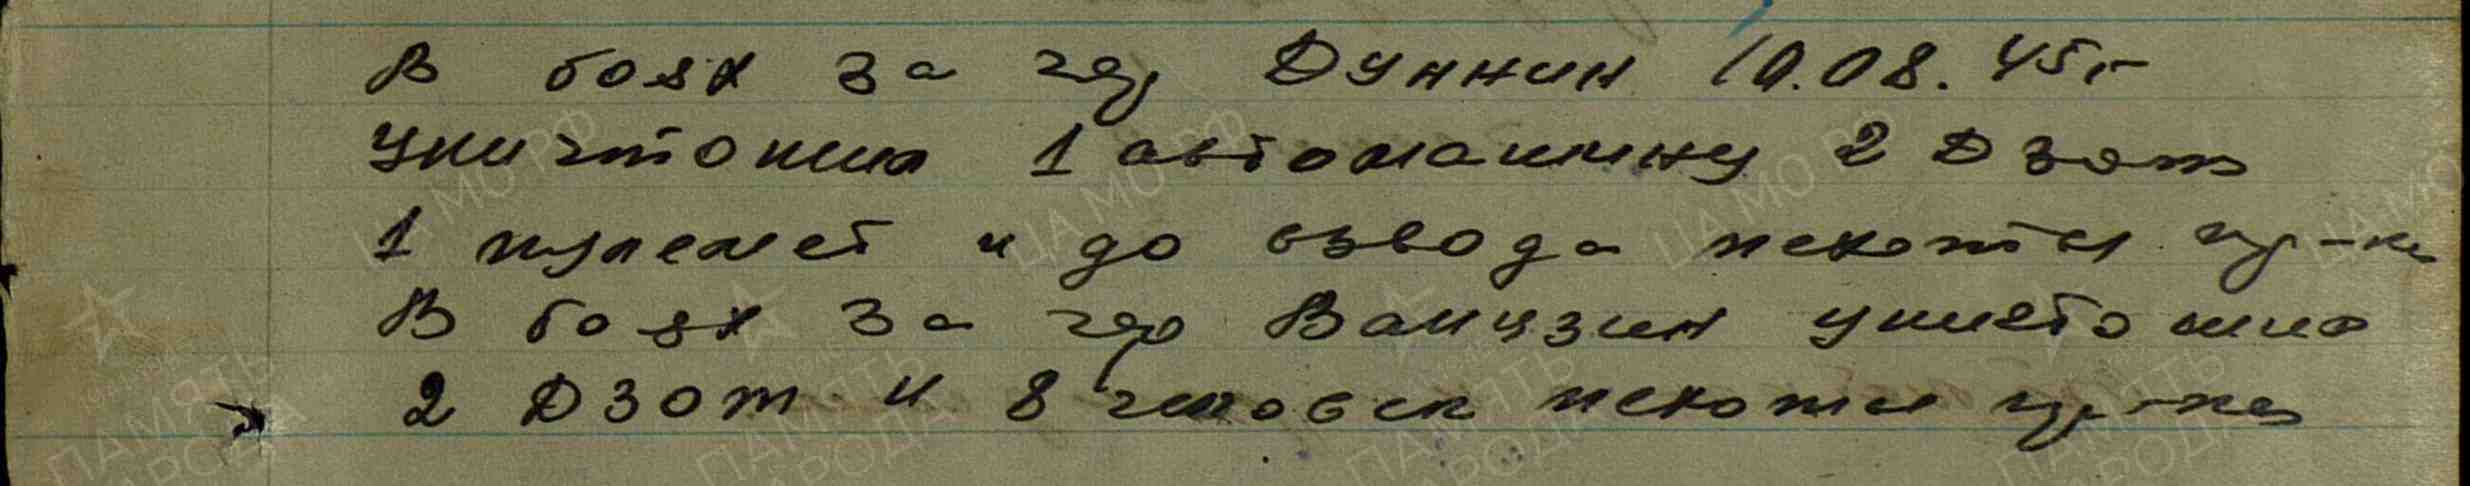 В боях за гор Дуннин 10.08.45г
уничтожил 1 автомашину 2 Дзот
1 пулемет и до взвода пехоты пр-ка
В боях за гор Ванцзин уничтожил
2 Дзот и 8 человек пехоты пр-ка